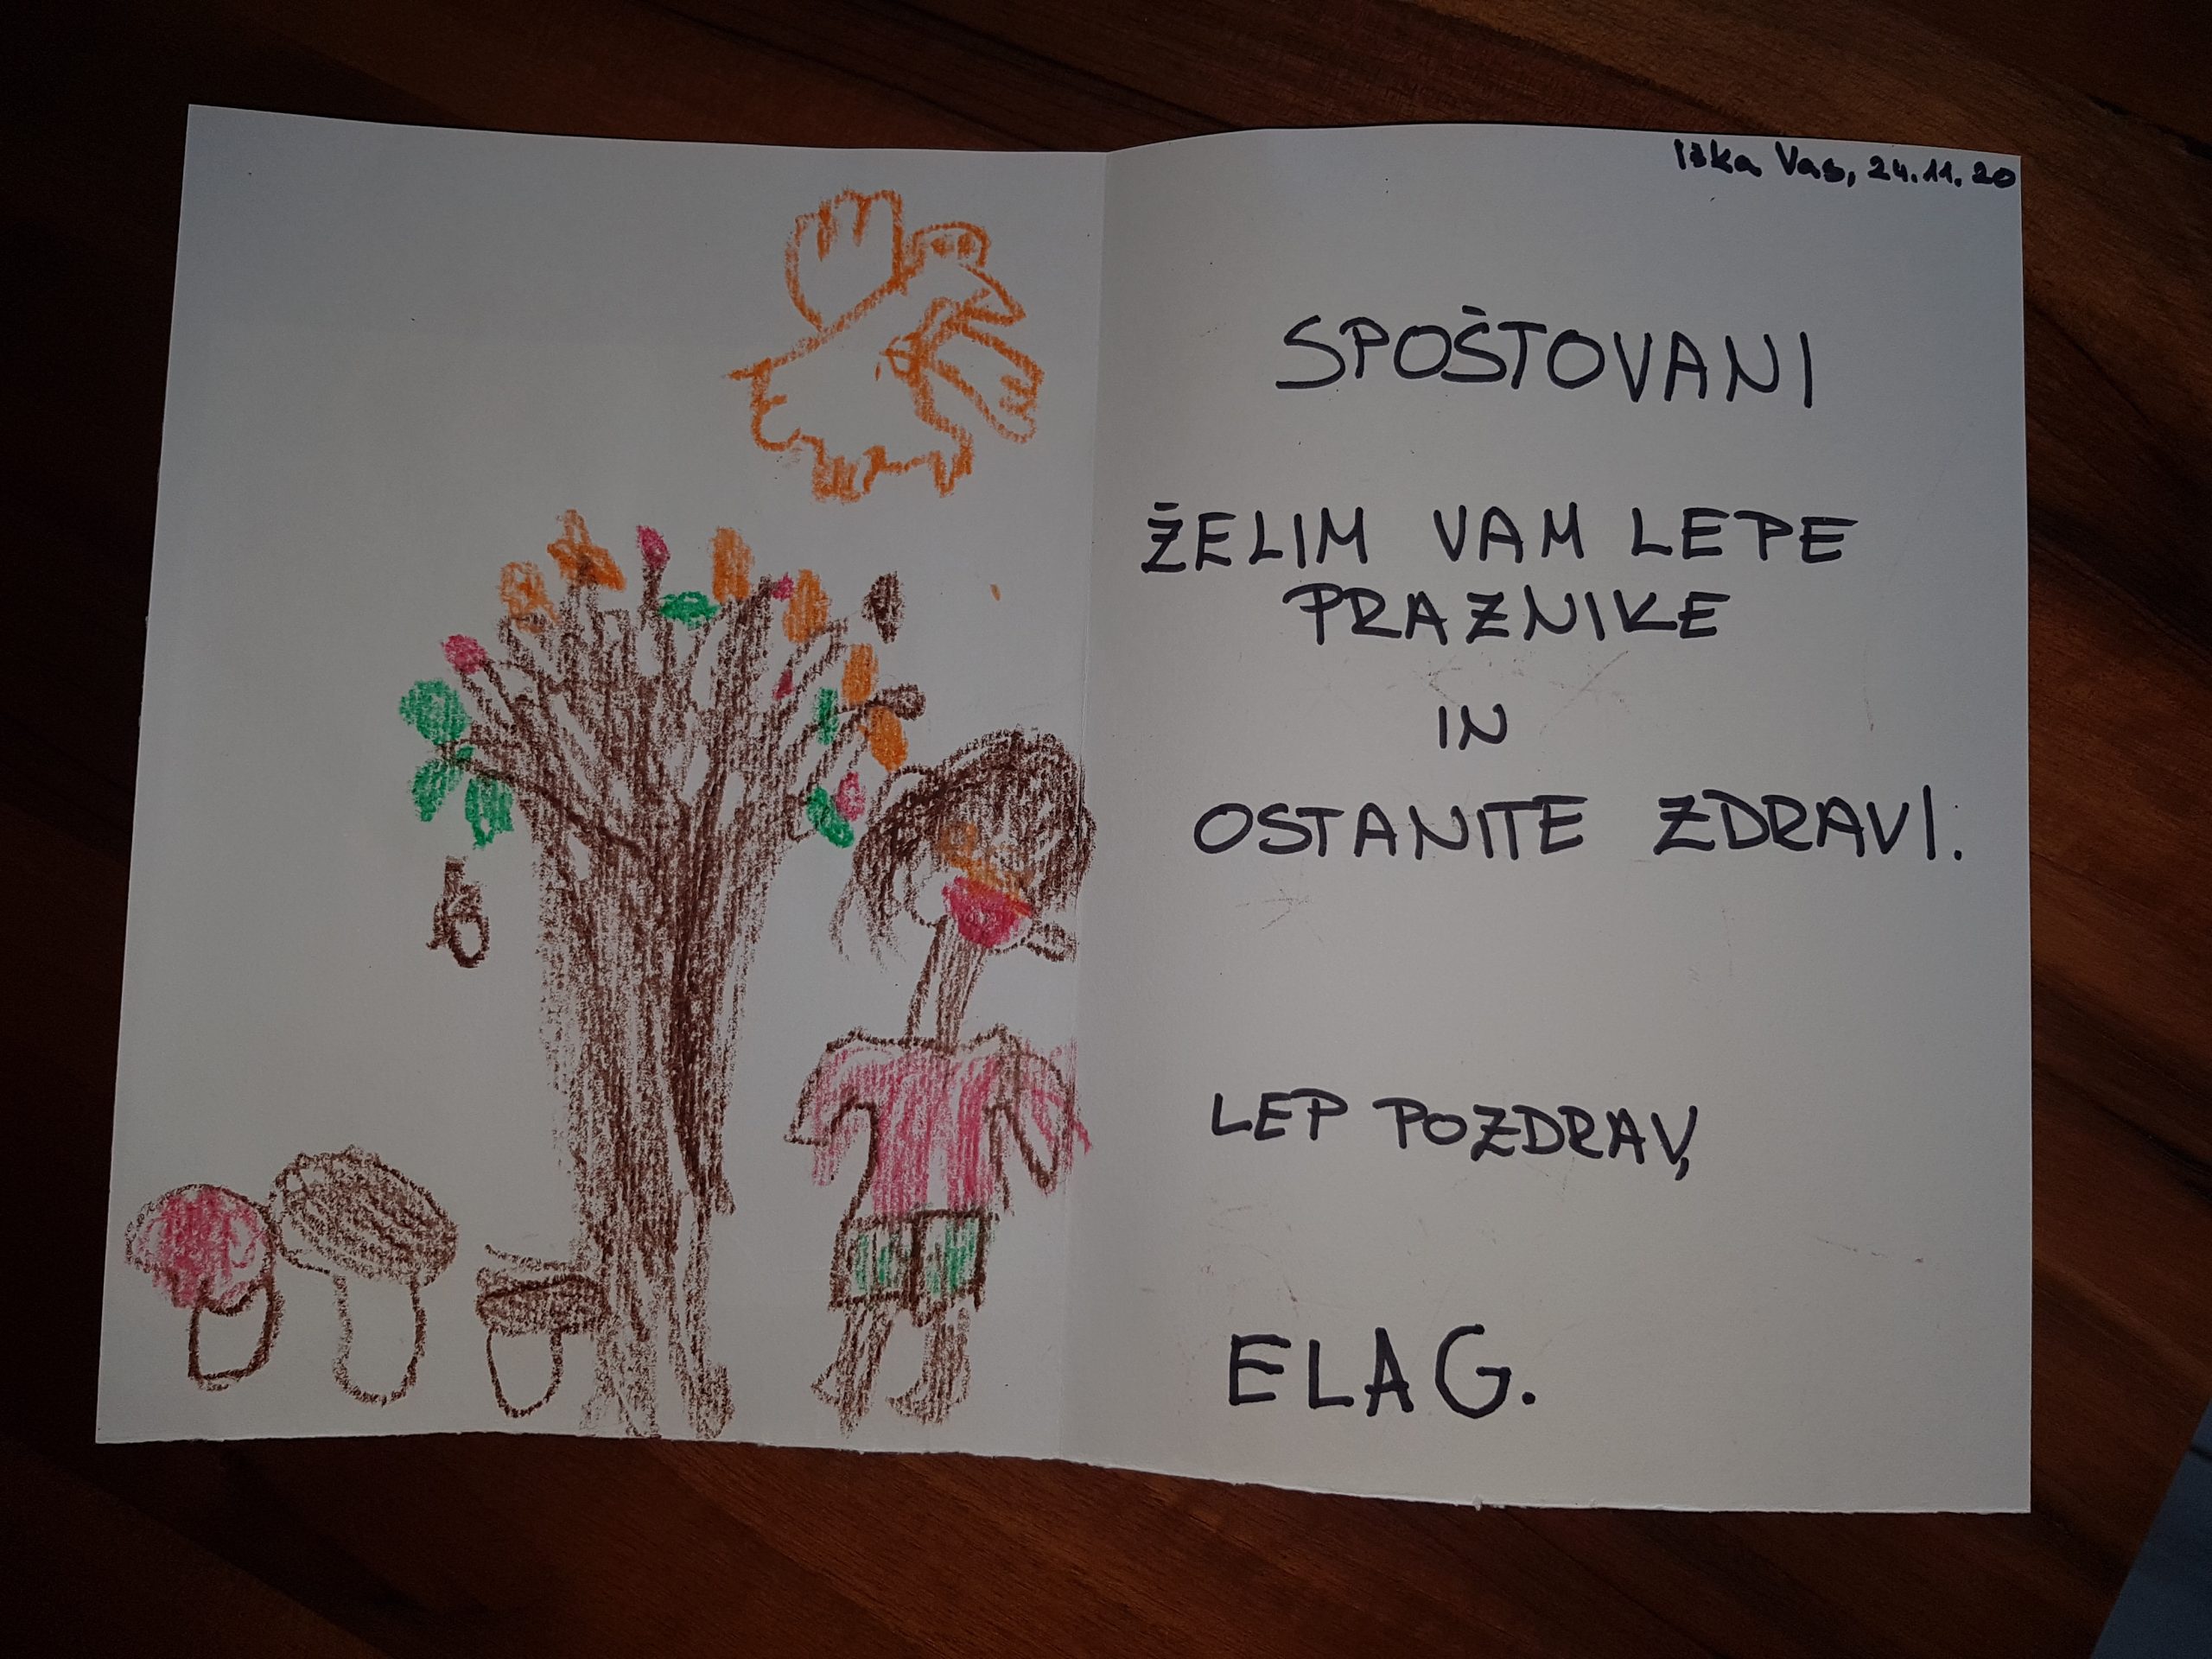 Iška Vas, 24.11.20
SPOŠTOVANI
ŽELIM VAM LEPE
PRAZNIKE
IN
OSTANITE ZDRAVI.
LEP POZDRAV,
ELA G.